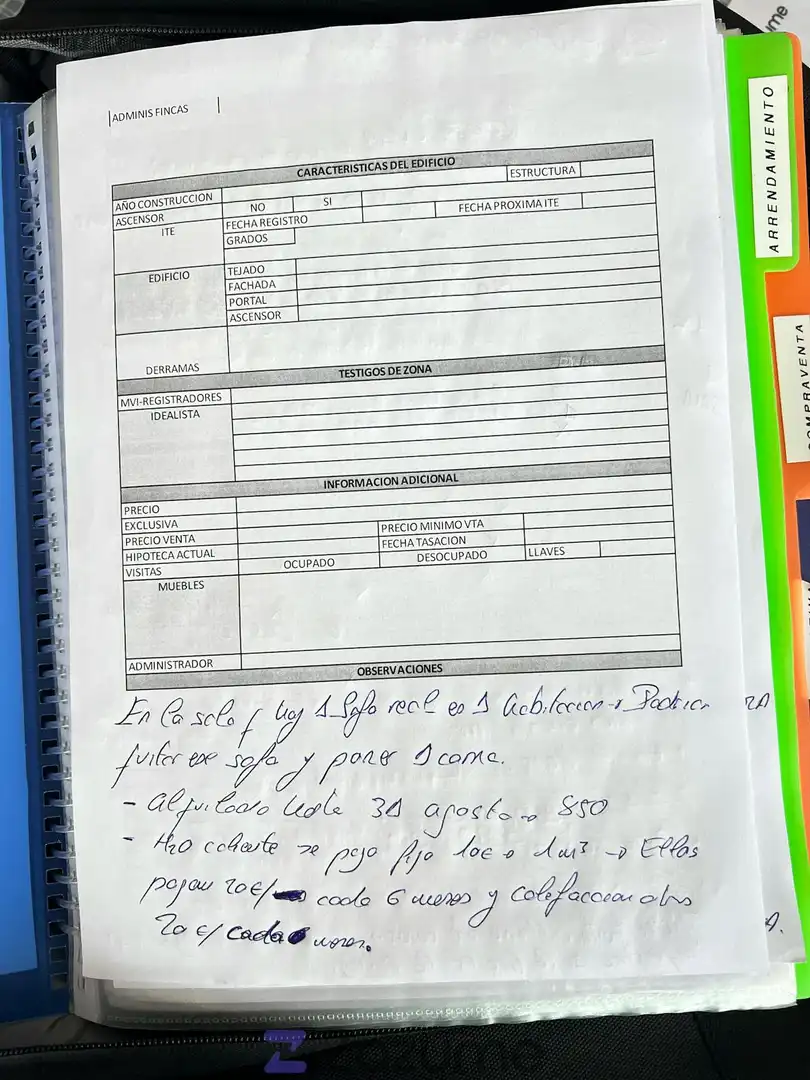 ADMINIS FINCAS
CARACTERISTICAS DEL EDIFICIO
AÑO CONSTRUCCION ESTRUCTURA
ASCENSOR NO SI
ITE FECHA REGISTRO FECHA PROXIMA ITE
GRADOS
EDIFICIO TEJADO
FACHADA
PORTAL
ASCENSOR
DERRAMAS
TESTIGOS DE ZONA
MVI-REGISTRADORES
IDEALISTA
INFORMACION ADICIONAL
PRECIO
EXCLUSIVA
PRECIO VENTA PRECIO MINIMO VTA
HIPOTECA ACTUAL FECHA TASACION
VISITAS OCUPADO DESOCUPADO LLAVES
MUEBLES
ADMINISTRADOR
OBSERVACIONES
En la sala hay 1 sofa real es 1 habitacion
sofa y poner 1 cama.
- Alquilado 31 agosto → 850
- H2O caliente se paga fijo 10€ 1m³ → Ellos
pagan 20€/ cada 6 meses y calefaccion otros
20€/ cada 6 meses.
ARRENDAMIENTO
OMPRAVENTA
zazume